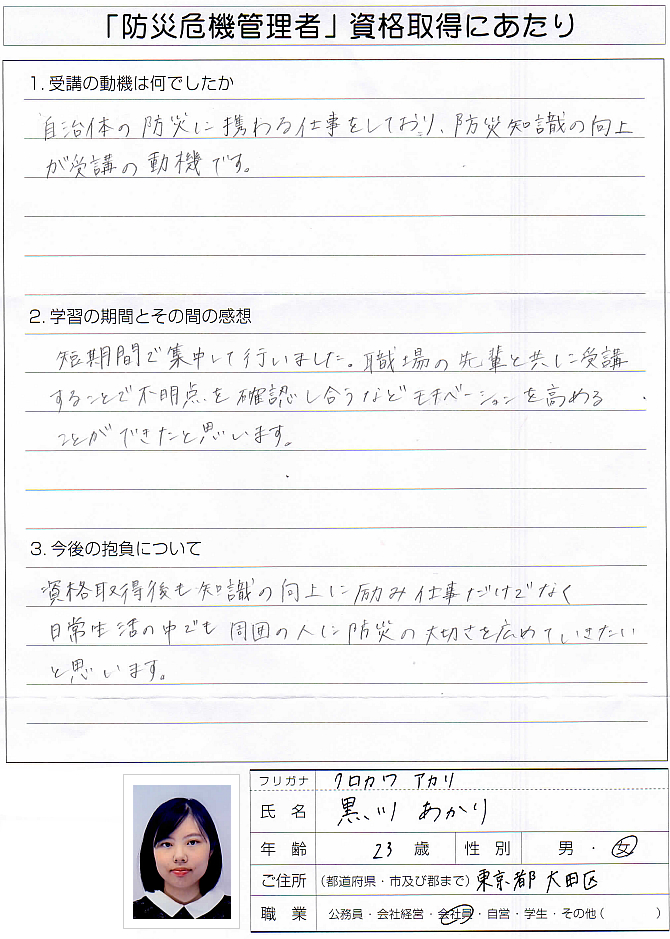 「防災危機管理者」資格取得にあたり
1. 受講の動機は何でしたか
自治体の防災に携わる仕事をしており、防災知識の向上
が受講の動機です。
2. 学習の期間とその間の感想
短期間で集中して行いました。職場の先輩と共に受講
することで不明点を確認し合うなどモチベーションを高める
ことができたと思います。
3. 今後の抱負について
資格取得後も知識の向上に励み仕事だけでなく
日常生活の中でも周囲の人に防災の大切さを広めていきたい
と思います。
フリガナ クロカワ アカリ
氏名 黒川 あかり
年齢 23 歳 性別 男・女
ご住所 (都道府県・市及び郡まで) 東京都 大田区
職業 公務員・会社経営・会社員・自営・学生・その他( )